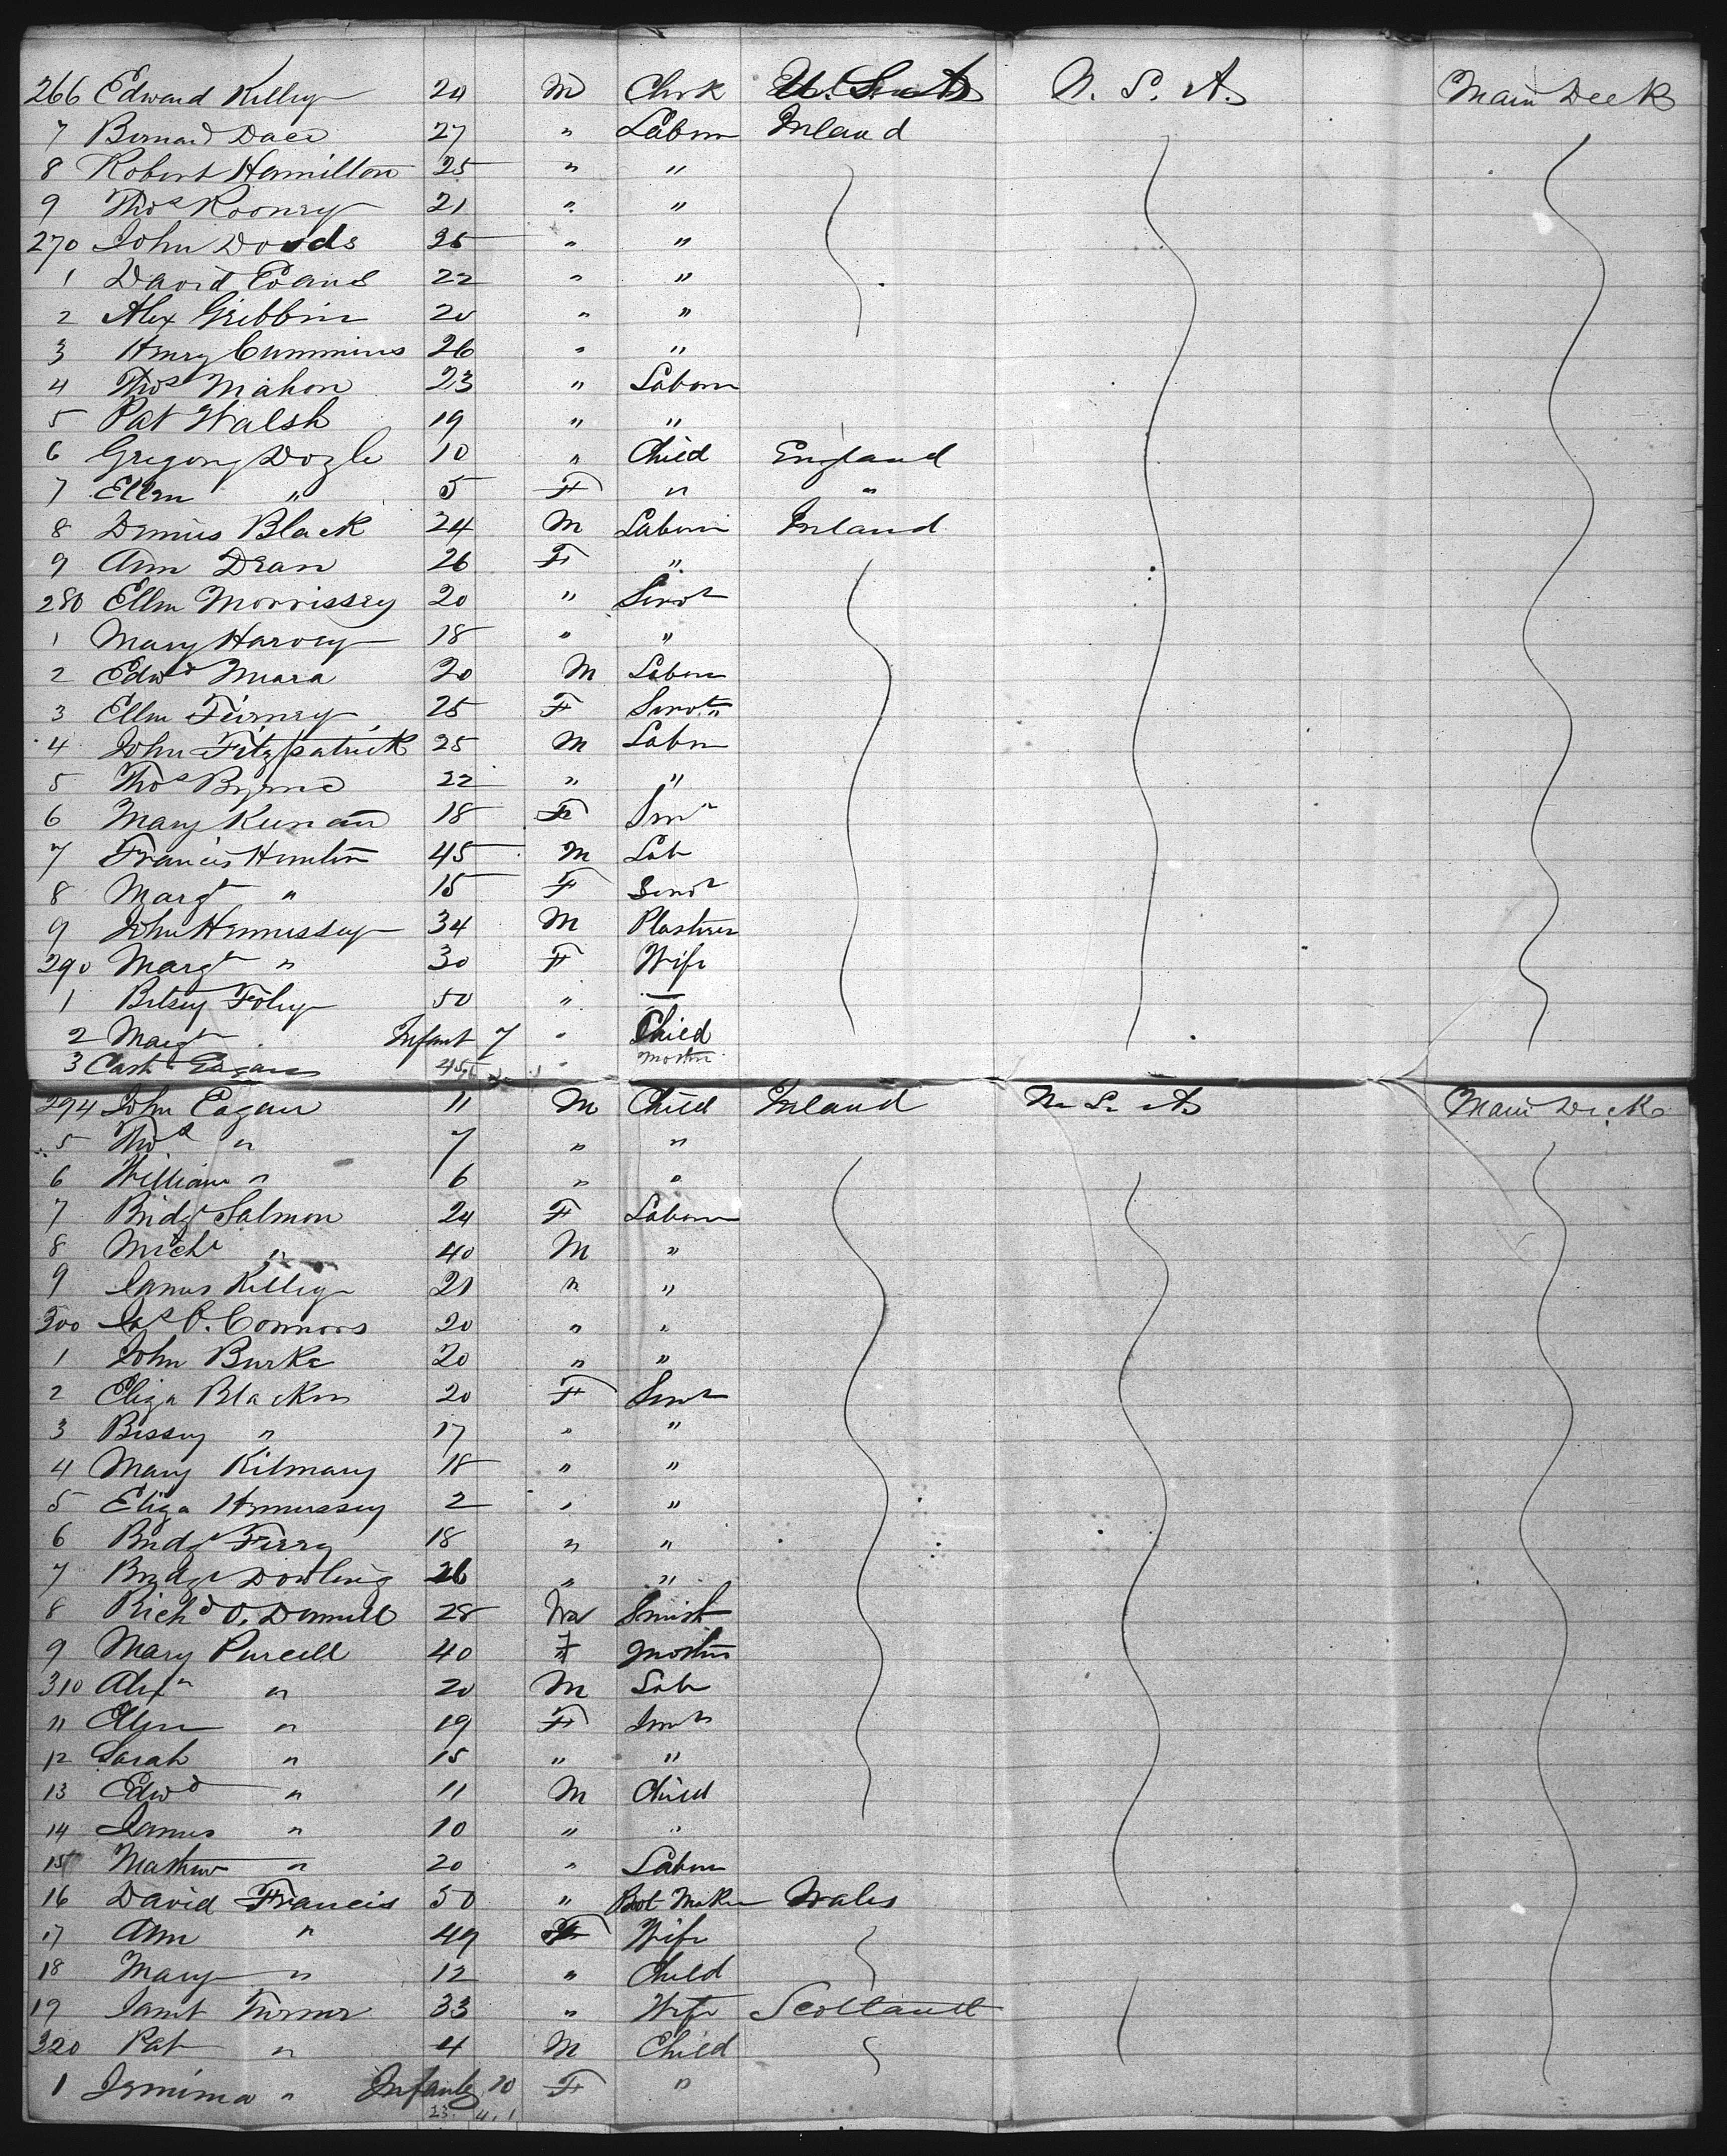 266 Edward Killey 24 M Clerk U. S. A. U. S. A. Main Deck
7 Bernard Daee 27 " Labour Ireland
8 Robert Hamilton 25 " "
9 Thos Rooney 21 " "
270 John Dowds 25 " "
1 David Evans 22 " "
2 Alex Gribbin 20 " "
3 Henry Cummins 26 " "
4 Thos Mahon 23 " Labour
5 Pat Walsh 19 " "
6 Gregory Doyle 10 " Child England
7 Ellen " 5 F " "
8 Dennis Black 24 M Labour Ireland
9 Ann Dean 26 F "
280 Ellen Morrissey 20 " Servt
1 Mary Harvey 18 " "
2 Edwd Meara 20 M Labour
3 Ellen Tierney 25 F Servt "
4 John Fitzpatrick 25 M Labr
5 Thos Byrne 22 " "
6 Mary Keenan 18 F Servt
7 Francis Hunter 45 M Lab
8 Margt " 15 F Servt
9 John Hennessey 34 M Plasterer
290 Margt " 30 F Wife
1 Betsey Foley 50 " —
2 Margt Infant 7 " Child
3 Cath Eagan 45 " Mother
294 John Eagan 11 M Child Ireland U. S. A. Main Deck
5 Thos " 7 " "
6 William " 6 " "
7 Bridgt Salmon 24 F Labour
8 Michl " 40 M "
9 James Killey 21 " "
300 Jas O. Connors 20 " "
1 John Burke 20 " "
2 Eliza Blacken 20 F Servt
3 Bessey " 17 " "
4 Mary Kilmary 18 " "
5 Eliza Hennessey 2 " "
6 Bridgt Ferry 18 " "
7 Bridgt Dowling 26 " "
8 Richd O. Donnell 28 M Smith
9 Mary Purcell 40 F Mother
310 Alexr " 20 M Lab
11 Ellen " 19 F Servt
12 Sarah " 15 " "
13 Edwd " 11 M Child
14 James " 10 " "
15 Mathew " 20 " Labour
16 David Francis 50 " Bot Maker Wales
17 Ann " 49 F Wife
18 Mary " 12 " Child
19 Janet Turner 33 " Wife Scotland
320 Pat " 4 M Child
1 Jemima " Infant 10 F "
23. 4. 1